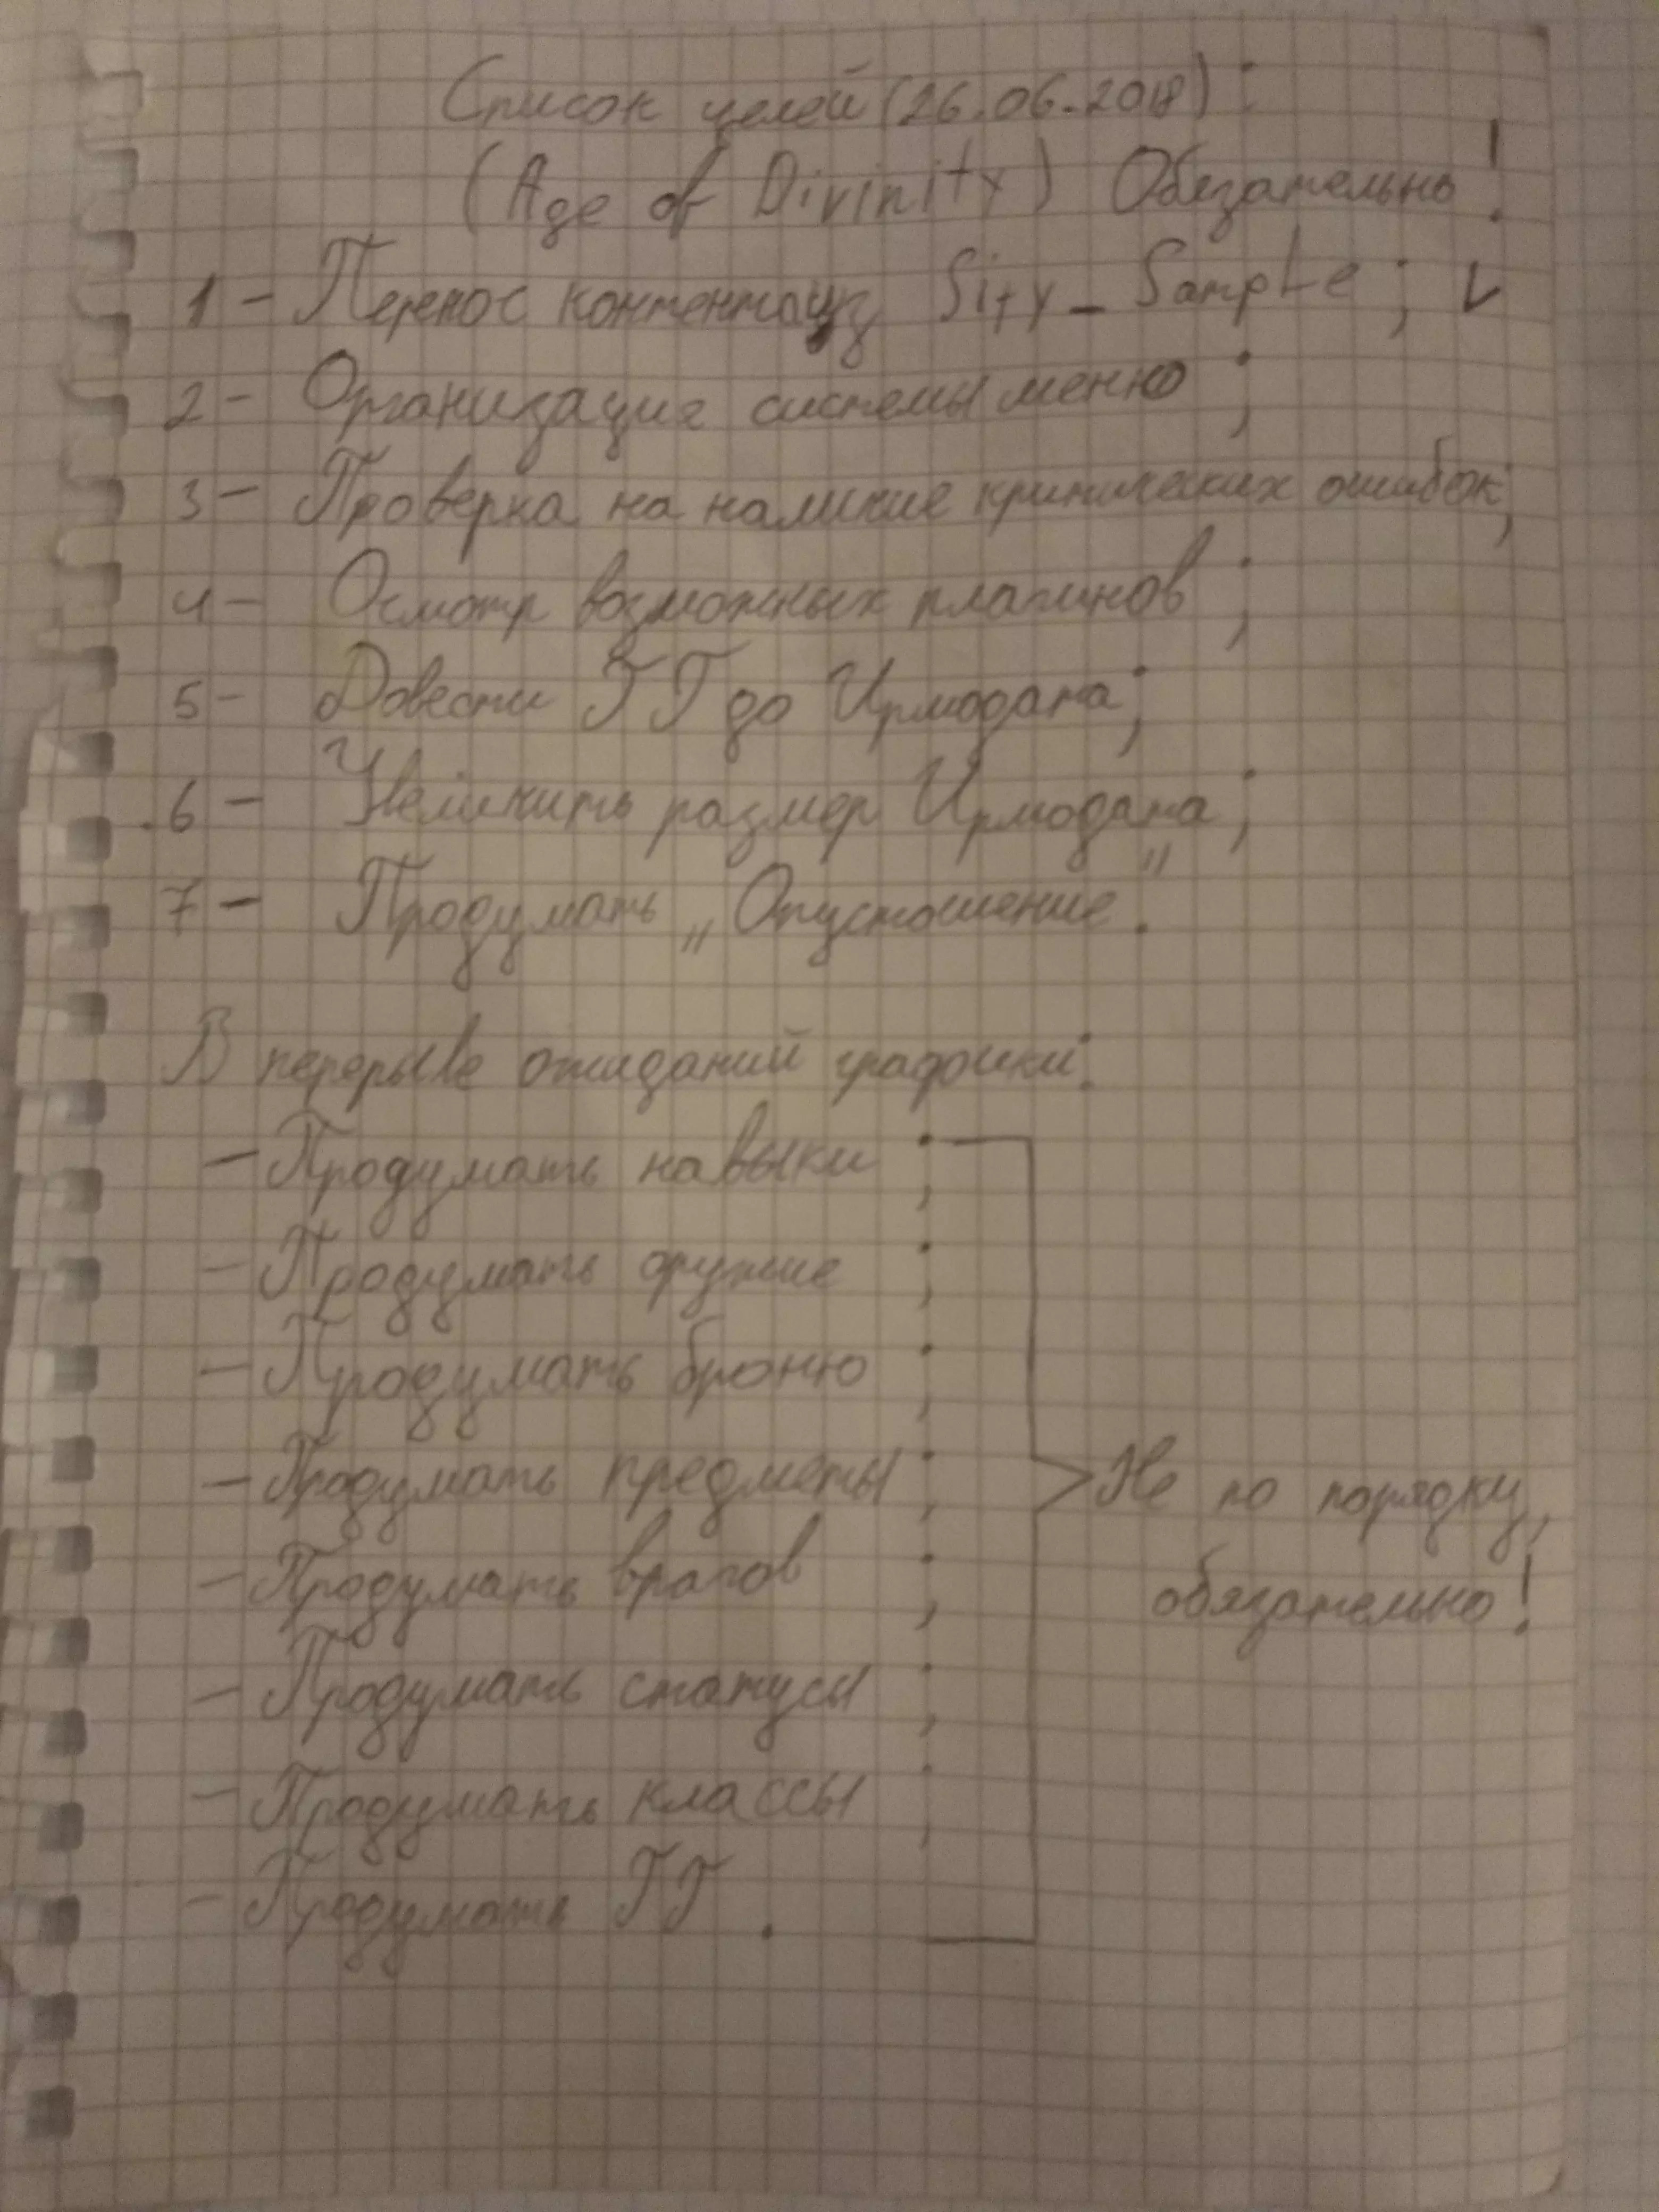 Список целей (26.06.2018):
(Age of Divinity) Обязательно!
1 - Перенос контента из Sity_Sample; V
2 - Организация системы меню;
3 - Проверка на наличие критических ошибок;
4 - Осмотр возможных плагинов;
5 - Довести ГГ до Ирмодата;
6 - Увеличить размер Ирмодата;
7 - Продумать „Опустошение".
В перерыве ожиданий графики:
- Продумать навыки;
- Продумать оружие;
- Продумать броню;
- Продумать предметы;
- Продумать врагов;
- Продумать статусы;
- Продумать классы;
- Продумать ГГ.
Не по порядку,
обязательно!